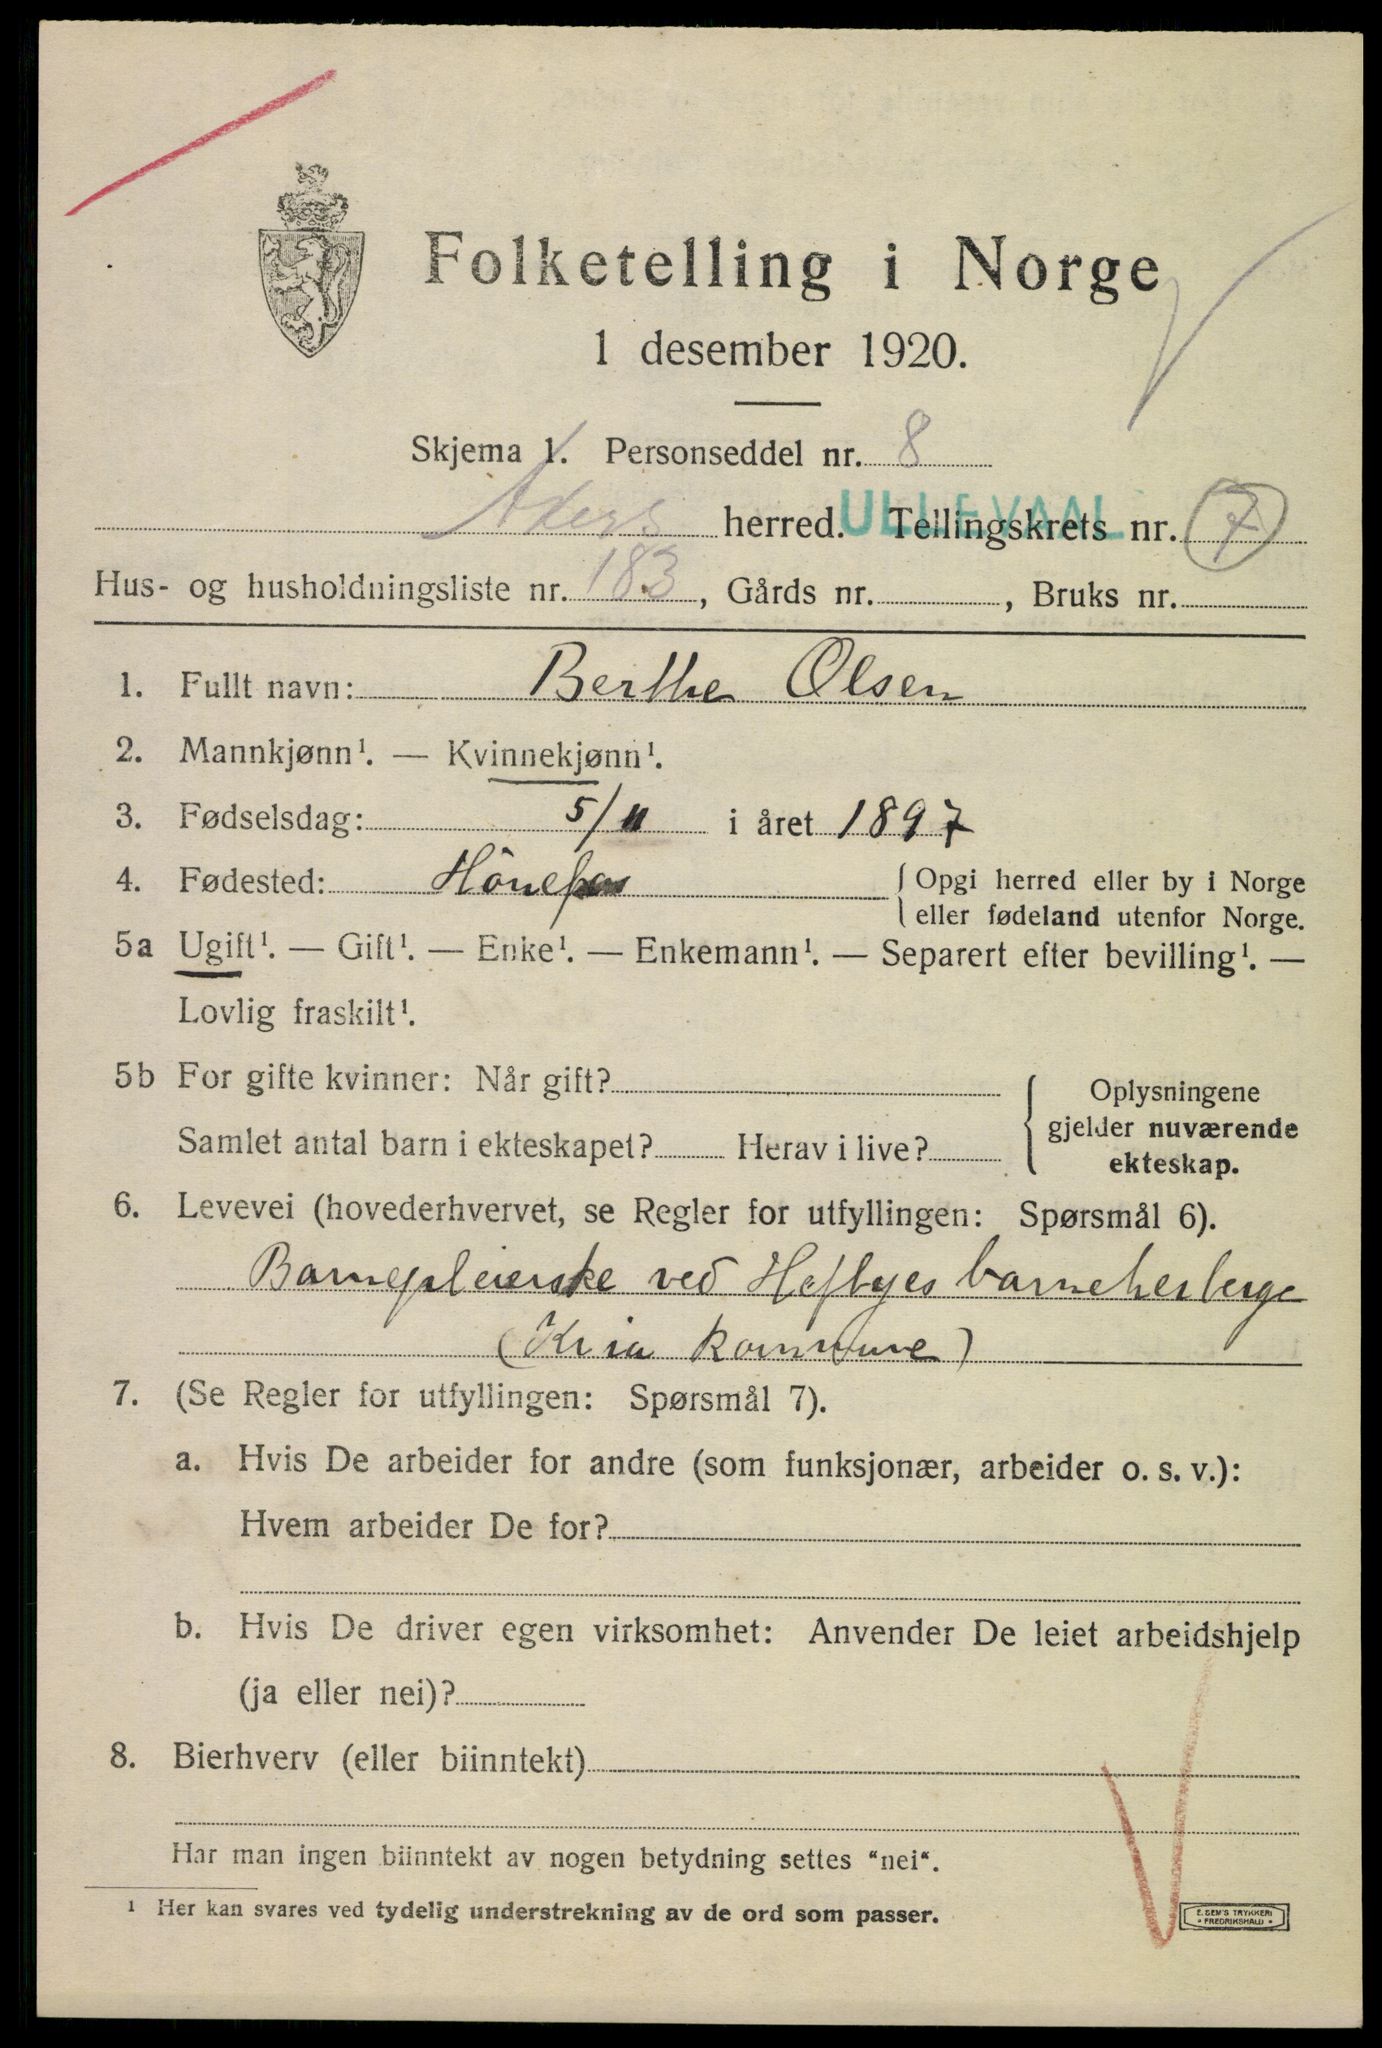 Folketelling i Norge
1 desember 1920.
Skjema 1. Personseddel nr. 8
Akers herred. ULLEVAAL Tellingskrets nr. 7
Hus- og husholdningsliste nr. 183, Gårds nr. , Bruks nr.
1. Fullt navn: Berthe Olsen
2. Mannkjønn¹. — Kvinnekjønn¹.
3. Fødselsdag: 5/11 i året 1897
4. Fødested: Hönefos { Opgi herred eller by i Norge
eller fødeland utenfor Norge.
5a Ugift¹. — Gift¹. — Enke¹. — Enkemann¹. — Separert efter bevilling¹. —
Lovlig fraskilt¹.
5b For gifte kvinner: Når gift?
Samlet antal barn i ekteskapet? Herav i live?
{ Oplysningene
gjelder nuværende
ekteskap.
6. Levevei (hovederhvervet, se Regler for utfyllingen: Spørsmål 6).
Barnepleierske ved Heftyes barneherberge
(Kria kommune)
7. (Se Regler for utfyllingen: Spørsmål 7).
a. Hvis De arbeider for andre (som funksjonær, arbeider o. s. v.):
Hvem arbeider De for?
b. Hvis De driver egen virksomhet: Anvender De leiet arbeidshjelp
(ja eller nei)?
8. Bierhverv (eller biinntekt)
Har man ingen biinntekt av nogen betydning settes "nei".
¹ Her kan svares ved tydelig understrekning av de ord som passer.
E. SEM'S TRYKKERI
FREDRIKSHALD